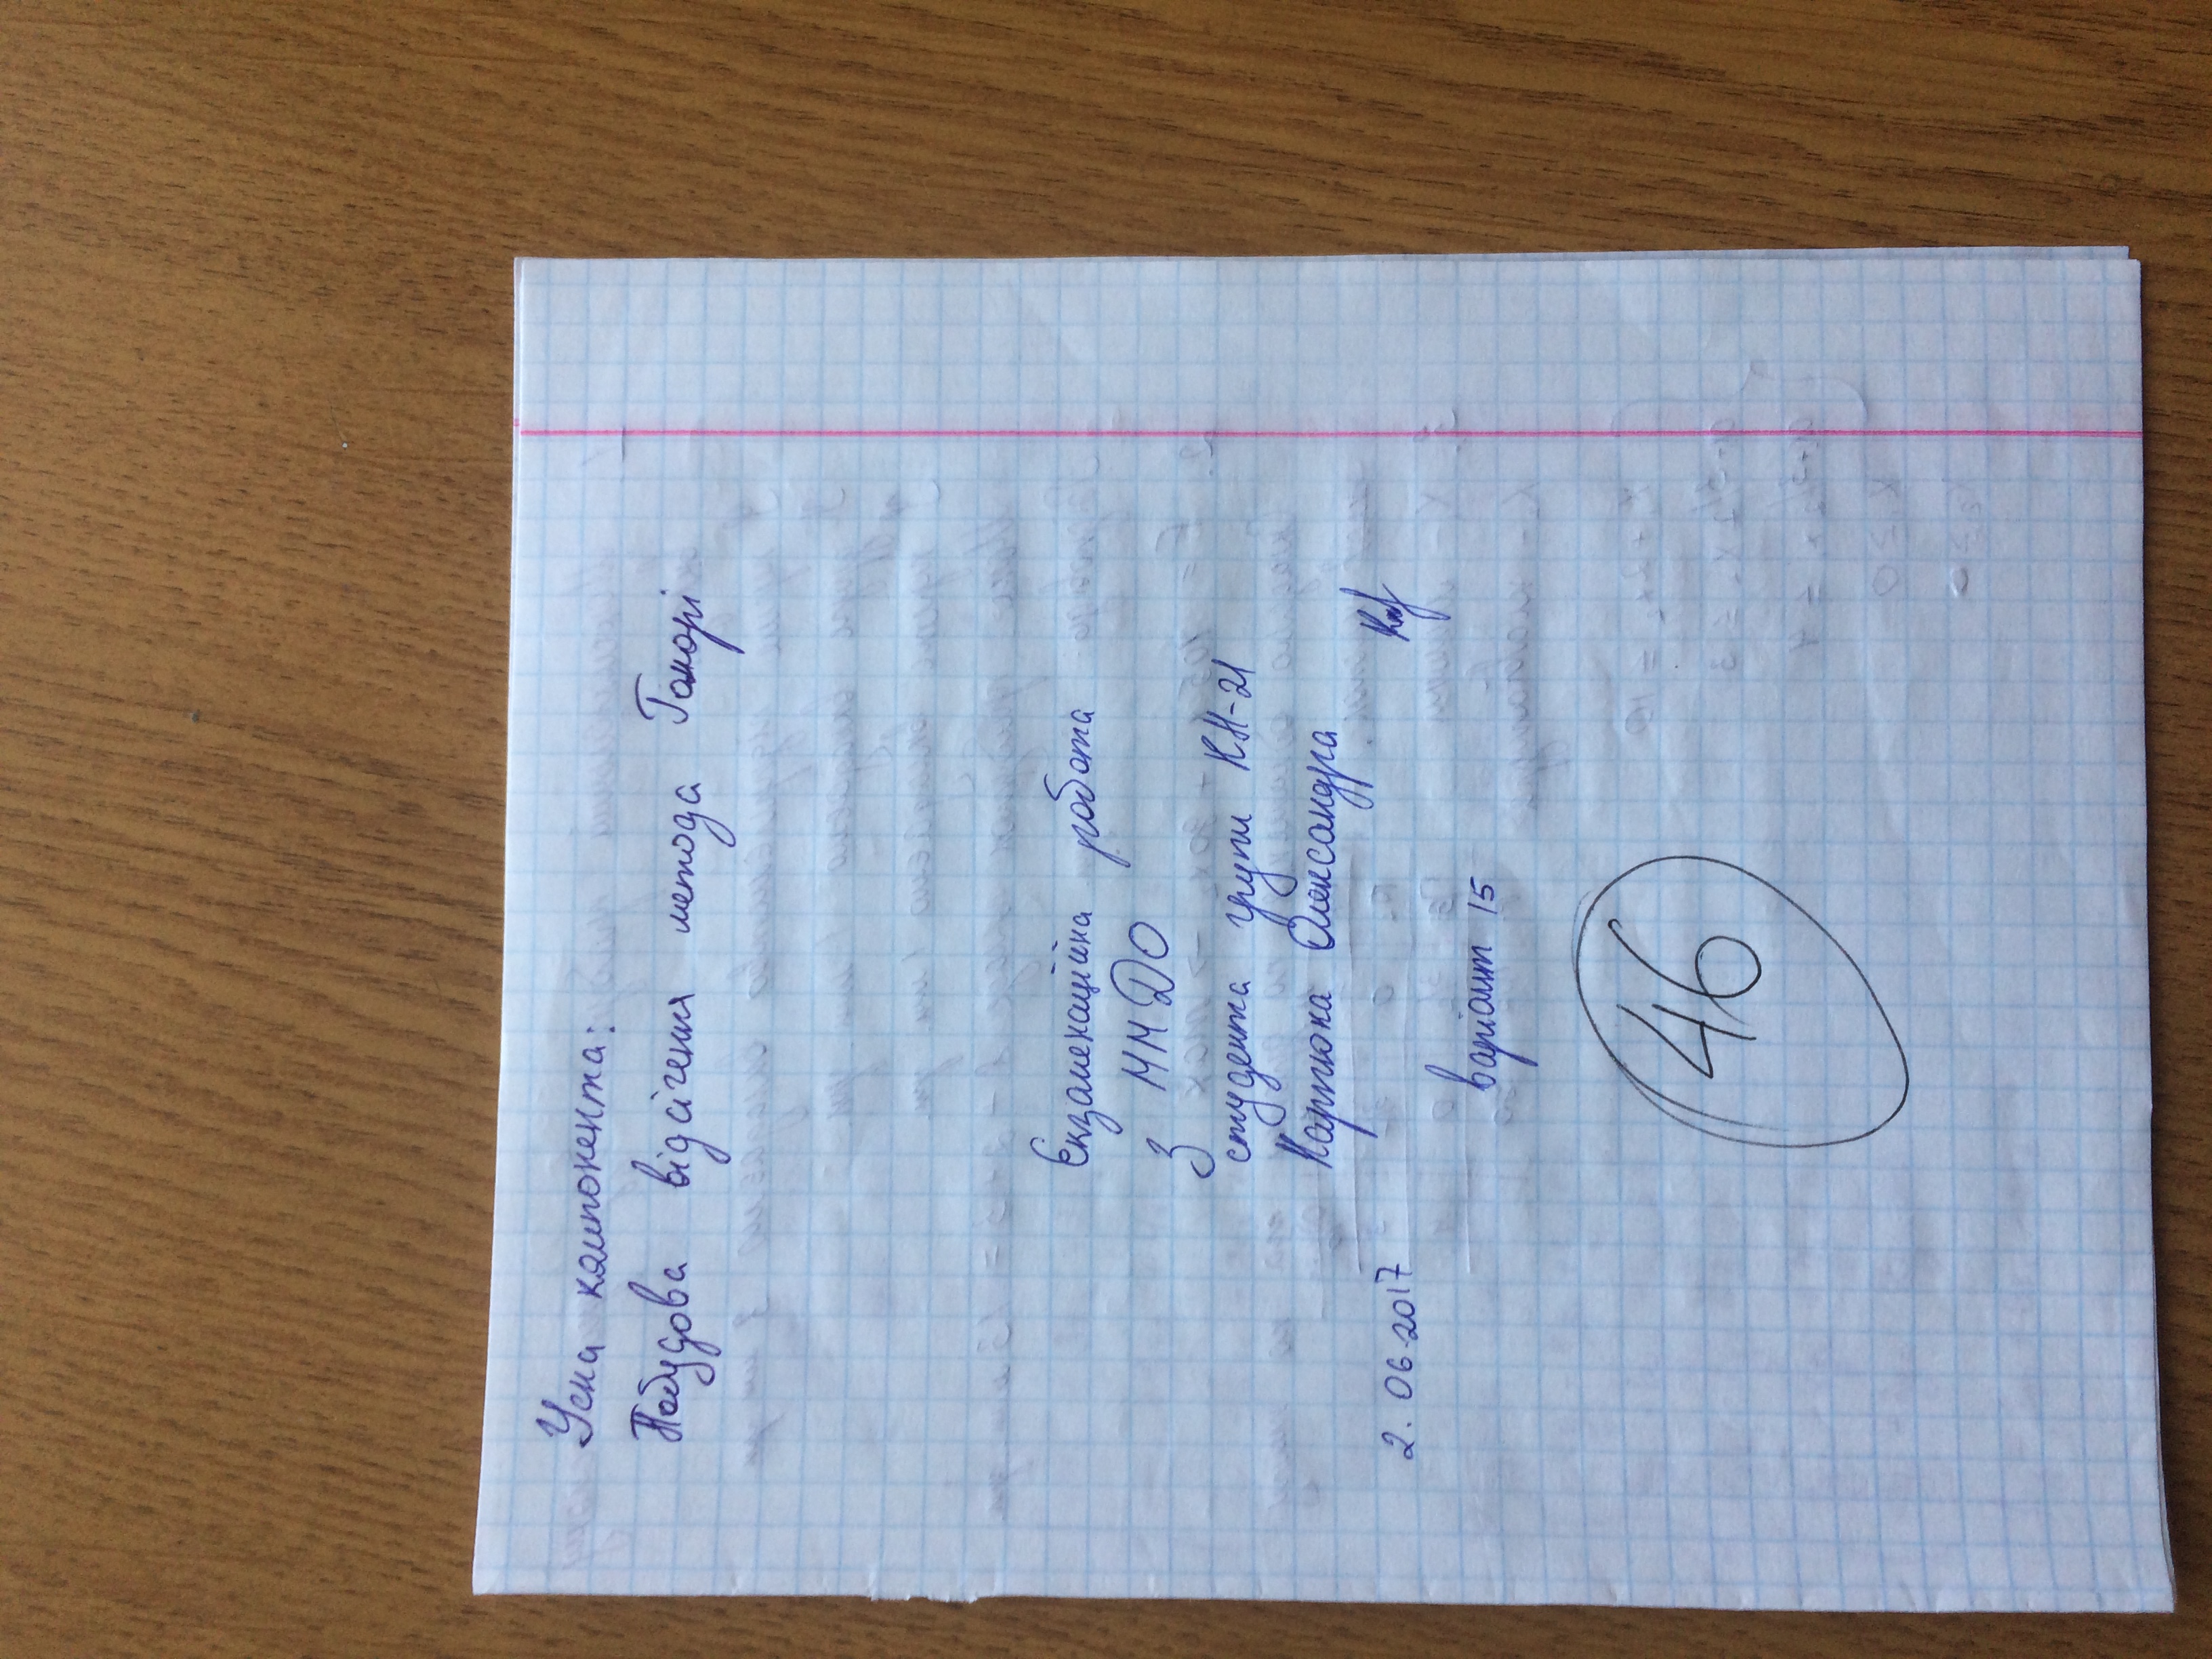 Усна компонента:
Побудова відсічення метода Гоморі
Екзаменаційна робота
з ММДО
студента групи КН-21
Мартюка Олександра
2.06.2017
варіант 15
46